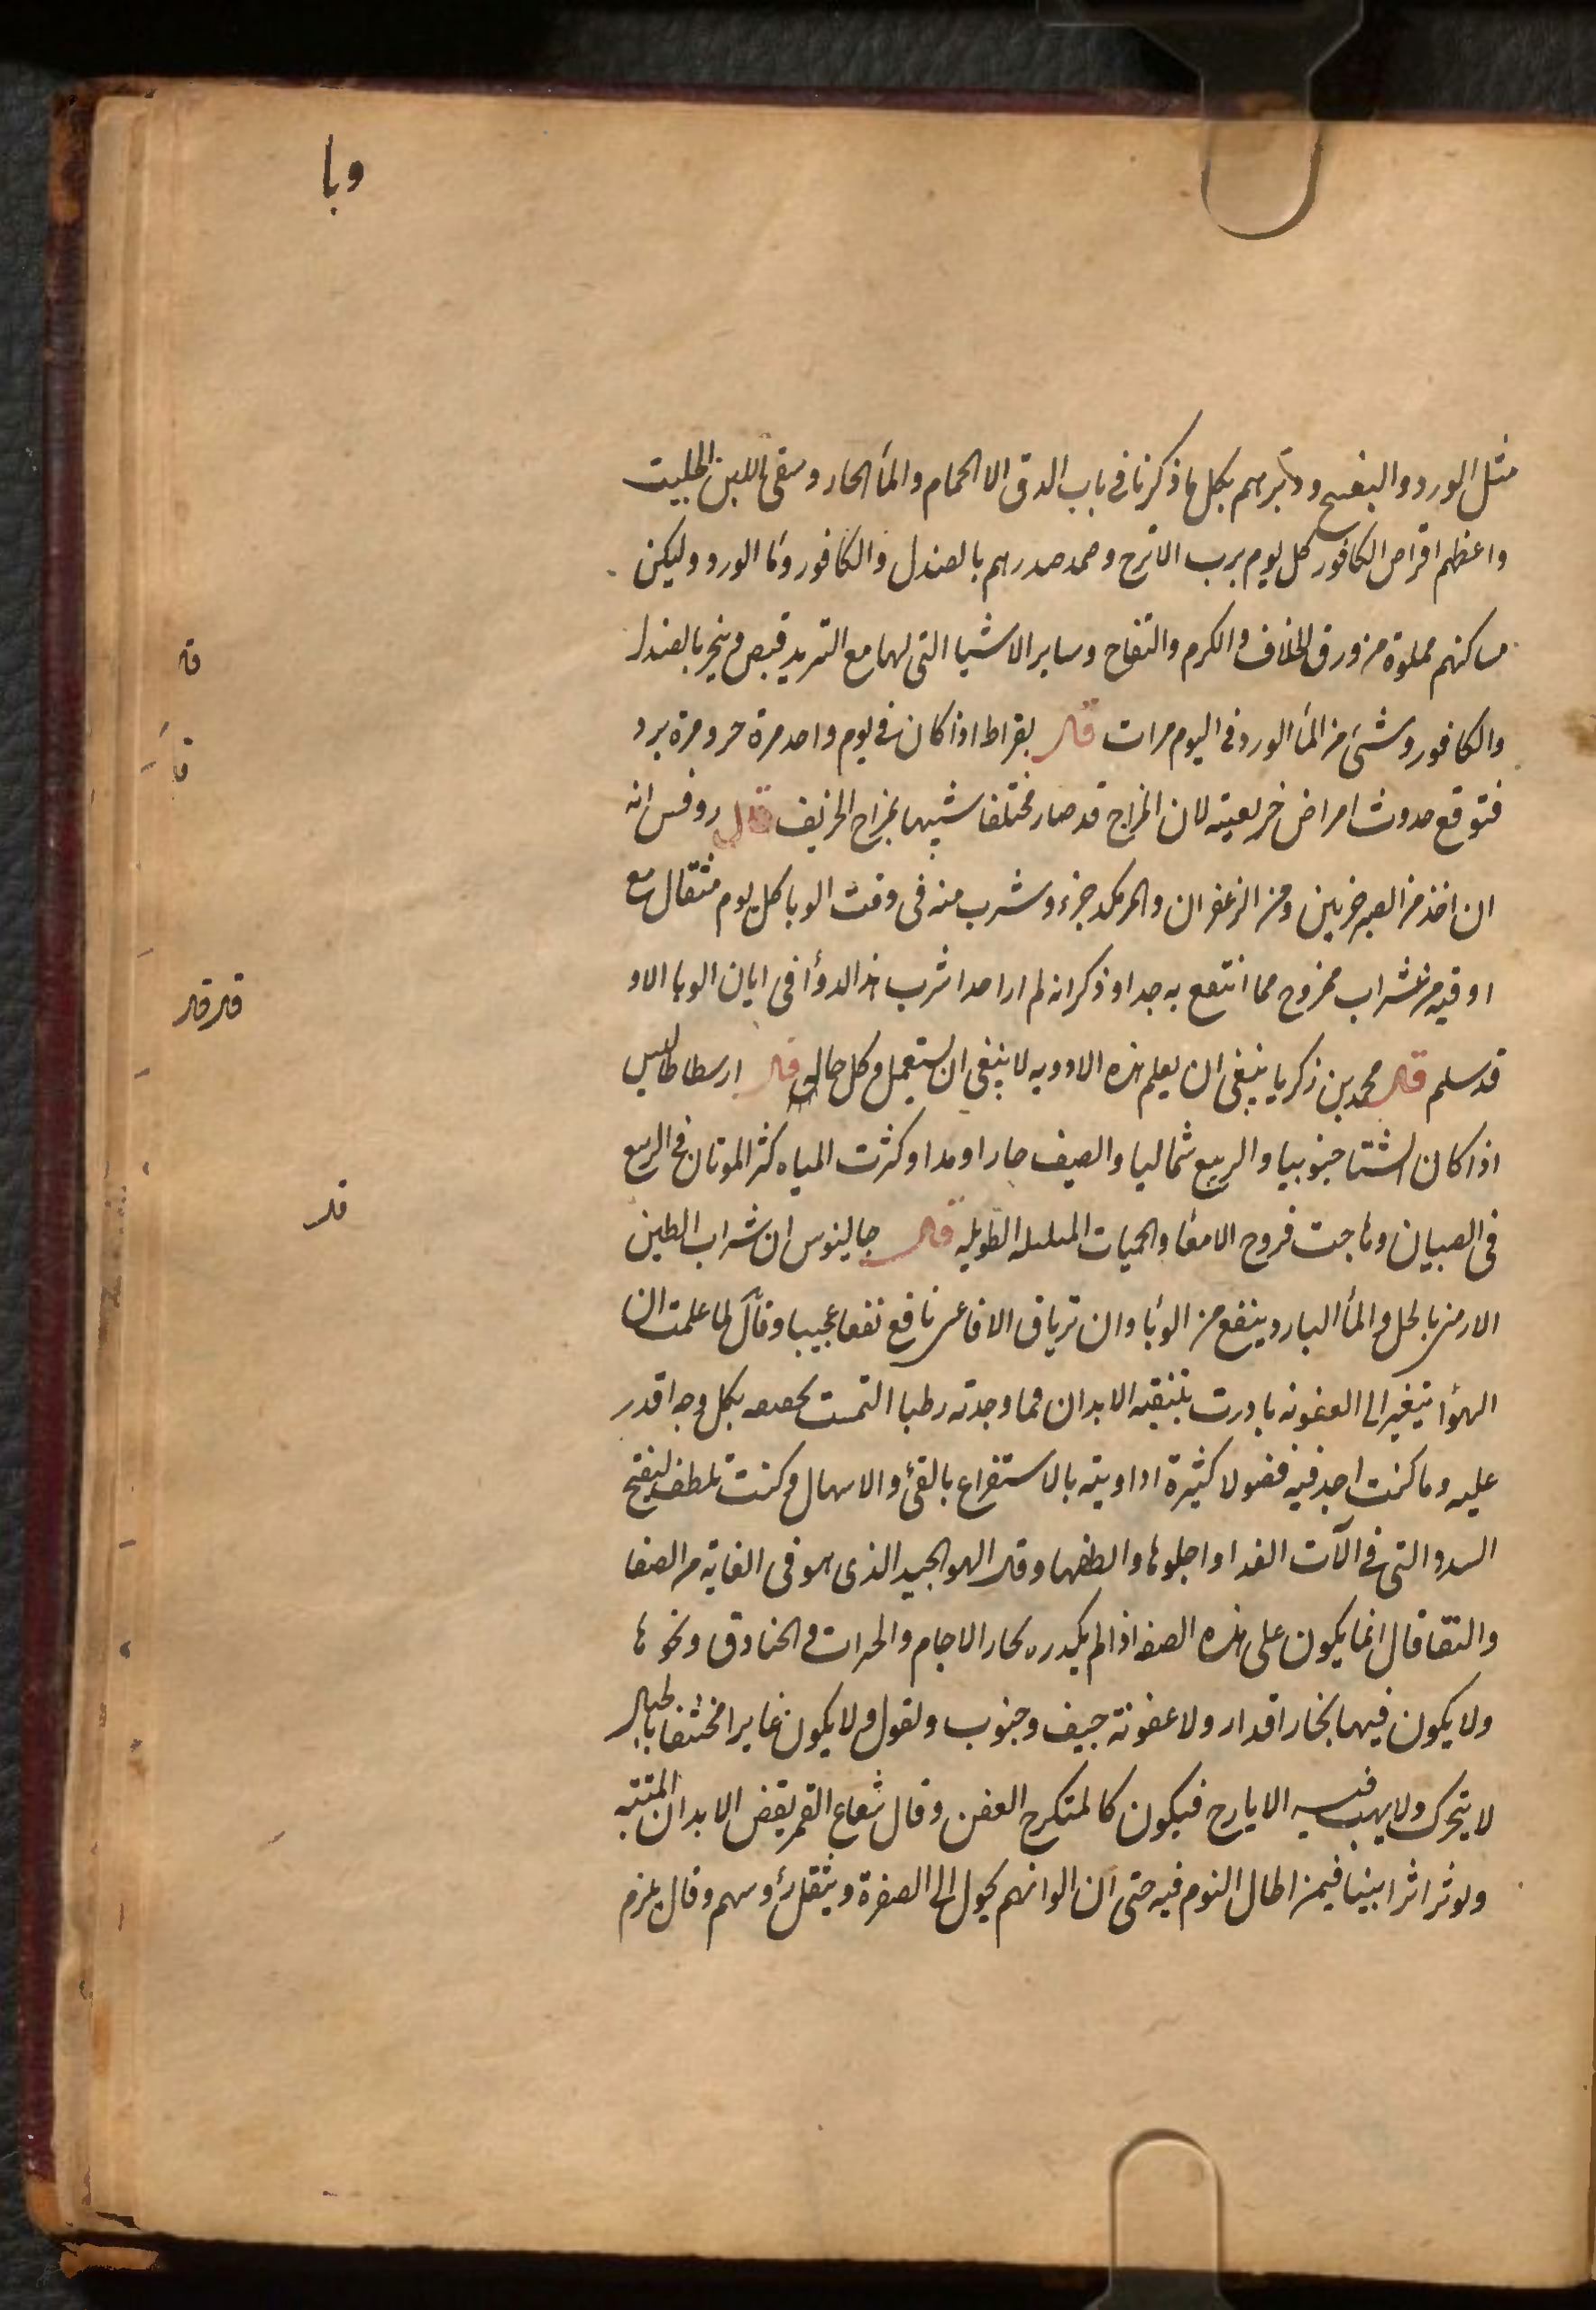 وبا
مثل الورد والبنفسج ودبرهم بكل ما ذكرنا فى باب الدق الا الحمام والمأ الحار وسقى اللبن الحليب
واعظهم اقراص الكافور كل يوم برب الاترج وضمد صدرهم بالصندل والكافور وما الورد وليكن
مساكنهم مملوة من ورق الخلاف والكرم والتفاح وساير الاشيا التى لها مع التبريد قبض ويبخر بالصندل
والكافور وشئ من المأ الورد فى اليوم مرات قال بقراط اذا كان فى يوم واحد مرة حر ومرة برد
فتوقع حدوث امراض خريفية لان المزاج قد صار مختلفا شبيها بمزاج الخريف قال روفس انه
ان اخذ من الصبر جزئين ومن الزعفران والمر مكد جزء وشرب منه فى وقت الوبا كل يوم مثقال مع
اوقيه من شراب ممزوج مما انتفع به جدا وذكر انه لم ار احدا شرب هذا الدوأ فى ابان الوبا الا و
قد سلم قال محمد بن زكريا ينبغى ان يعلم هذه الادويه لا ينبغى ان يستعمل فى كل حال قال ارسطاطاليس
اذا كان الشتا جنوبيا والربيع شماليا والصيف حارا ومدا وكثرت المياه كثر الموتان فى الربيع
فى الصبيان وهاجت قروح الامعا والحميات الطويله قال جالينوس ان شراب الطين
الارمنى بالخل والمأ البارد ينفع من الوبا وان ترياق الافاعى نافع نفعا عجيبا وقال لما علمت ان
الهوأ يتغير الى العفونه بادرت بتنقيه الابدان فما وجدته رطبا التمست تجفيفه بكل وجه اقدر
عليه وما كنت اجد فيه فضولا كثيرة اداويته بالاستفراغ بالقئ والاسهال وكنت بلطف ليفتح
السدد التى فى آلات الغدا واجلوها والطفها وقال الهوا الجيد الذى هو فى الغاية من الصفا
والنقا قال انما يكون على هذه الصفه اذا لم يكدره بخار الاجام والخنادق ونحوها
ولا يكون فيها بخار اقذار ولا عفونة جيف وجنوب وبقول ولا يكون غايرا مختنقا بالجبال
لا يتحرك ولا يهب فيه الا يارح فيكون كالمتكرج العفن وقال شعاع القمر يقض الابدان الميتة
ويوثر اثرا بينا فيمن اطال النوم فيه حتى ان الوانهم يحول الى الصفرة ويثقل رؤسهم وقال يلزم
قه
قأ
قد قد
قد